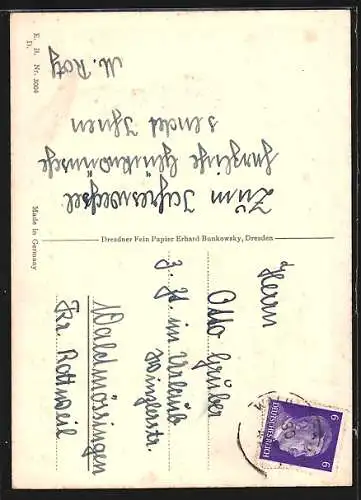 Zum Jahreswechsel
herzliche Glückwünsche
sendet Ihnen
M. Roty
E. B. Nr. 3004
D.
Made in Germany
Dresdner Fein Papier Erhard Bunkowsky, Dresden
Herrn
Otto Gruber
z. Zt. im Urlaub
Waldmössingen
Kr. Rottweil
6 DEUTSCHES REICH 6